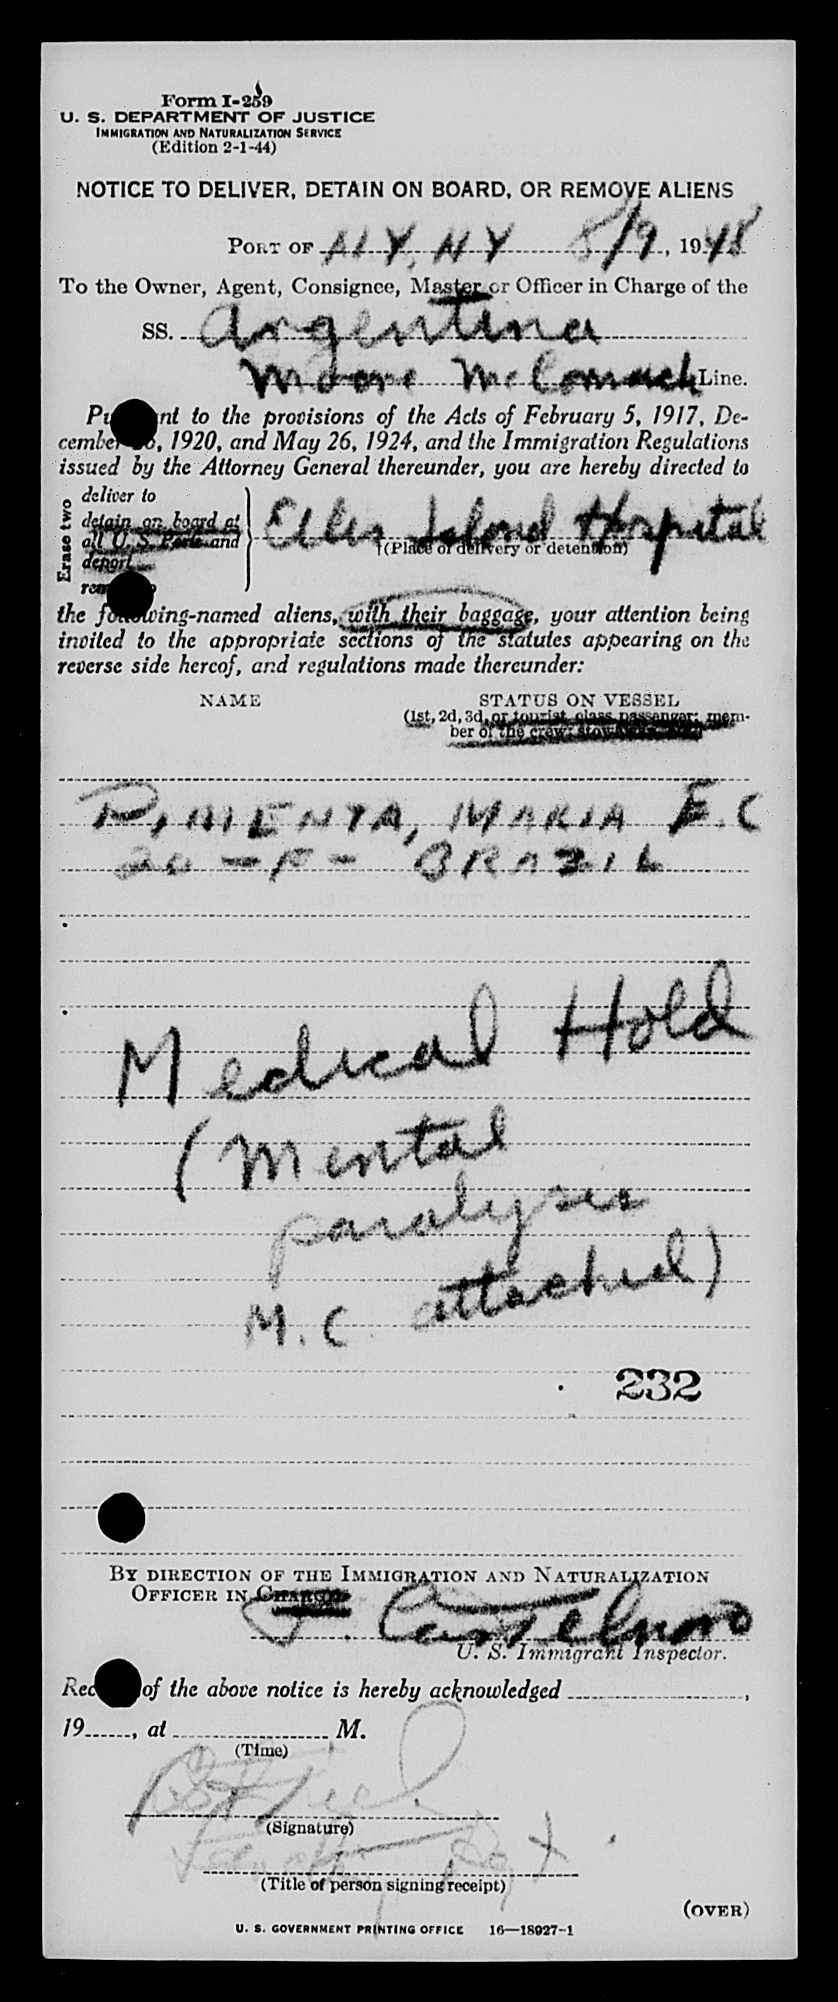 Form I-259
U. S. DEPARTMENT OF JUSTICE
IMMIGRATION AND NATURALIZATION SERVICE
(Edition 2-1-44)
NOTICE TO DELIVER, DETAIN ON BOARD, OR REMOVE ALIENS
PORT OF NY, NY 8/9, 1948
To the Owner, Agent, Consignee, Master or Officer in Charge of the
SS. Argentina
Moore McCormack Line.
nt to the provisions of the Acts of February 5, 1917, De-
cember, 1920, and May 26, 1924, and the Immigration Regulations
issued by the Attorney General thereunder, you are hereby directed to
Erase two
deliver to
detain on board at
all U. S. Ports and
deport
Ellis Island Hospital
†(Place of delivery or detention)
the following-named aliens, with their baggage, your attention being
invited to the appropriate sections of the statutes appearing on the
reverse side hereof, and regulations made thereunder:
NAME STATUS ON VESSEL
(1st, 2d, 3d, or tourist class passenger; mem-
ber of the crew;
PIMENTA, MARIA E.C
20 - F - BRAZIL
Medical Hold
(Mental
paralysis
M.C. attached)
232
BY DIRECTION OF THE IMMIGRATION AND NATURALIZATION
OFFICER IN CHARGE
Castelnovo
U. S. Immigrant Inspector.
of the above notice is hereby acknowledged ,
19 , at M.
(Time)
(Signature)
(Title of person signing receipt)
(OVER)
U. S. GOVERNMENT PRINTING OFFICE 16—18927-1